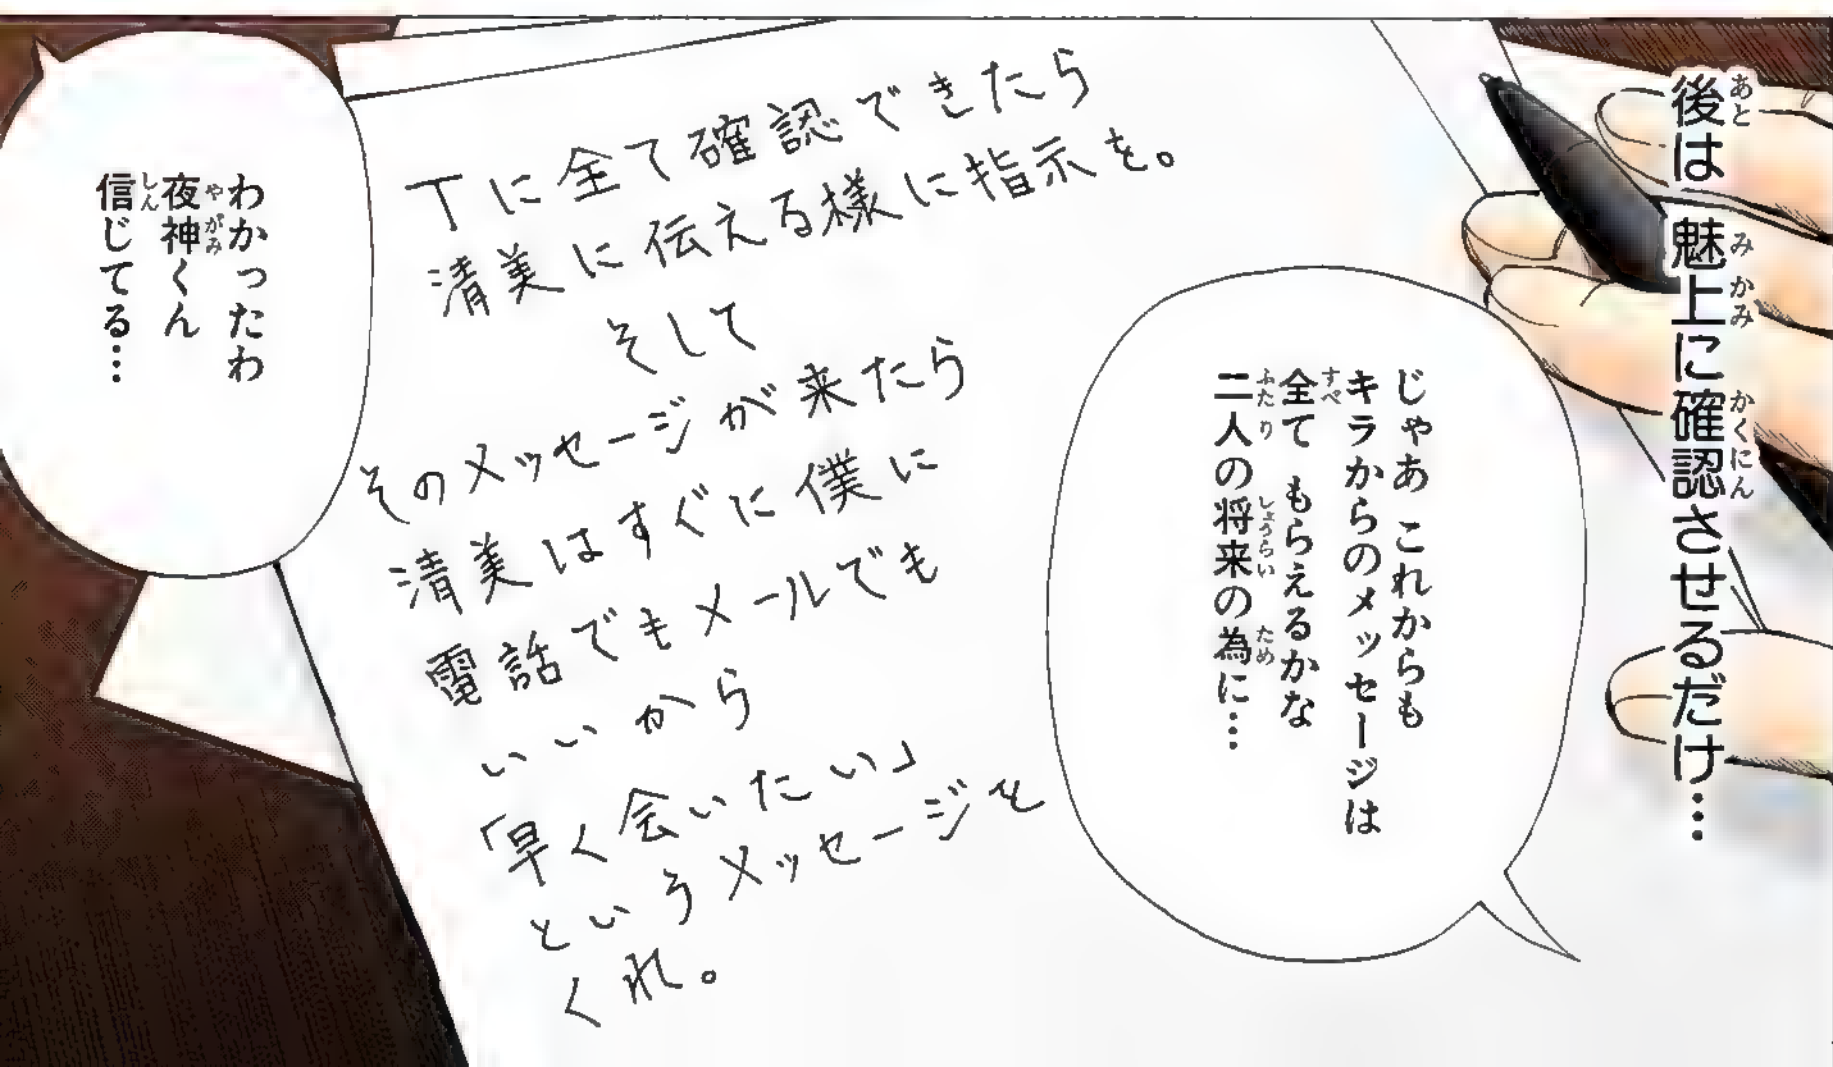 後は 魅上に確認させるだけ…
じゃあ これからも
キラからのメッセージは
全て もらえるかな
二人の将来の為に…
Tに全て確認できたら
清美に伝える様に指示を。
そして
そのメッセージが来たら
清美はすぐに僕に
電話でもメールでも
いいから
「早く会いたい」
というメッセージを
くれ。
わかったわ
夜神くん
信じてる…